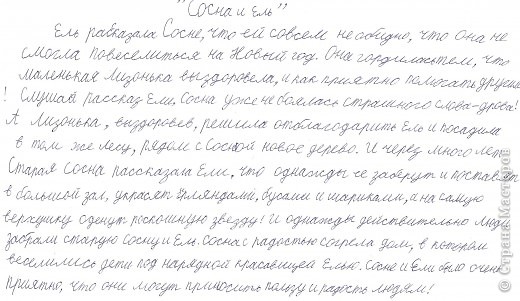 "Сосна и Ель"
Ель рассказала Сосне, что ей совсем не обидно, что она не
смогла повеселиться на Новый год. Она гордилась тем, что
маленькая Лизонька выздоровела, и как приятно помогать другим
! Слушая рассказ Ели, Сосна уже не боялась страшного слова-дрова!
А Лизонька, выздоровев, решила отблагодарить Ель и посадила
в том же лесу, рядом с Сосной новое дерево. И через много лет
Старая Сосна рассказала Ели, что однажды её заберут и поставят
в большой зал, украсят гирляндами, бусами и шариками, а на самую
верхушку оденут роскошную звезду! И однажды действительно люди
забрали старую Сосну и Ель. Сосна с радостью согрела дом, в котором
веселились дети под нарядной красавицей Елью. Сосне и Ели было очень
приятно, что они могут приносить пользу и радость людям!
© Страна Мастеров